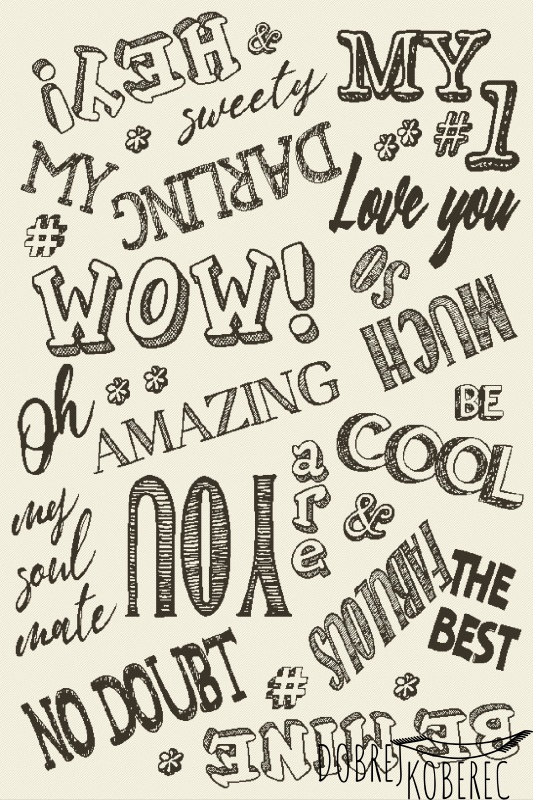 HEY!
&
sweety
MY
1
*
* * #
MY
DARLING
Love you
#
WOW!
SO
MUCH
Oh
* *
AMAZING
BE
COOL
my
soul
mate
YOU
are
&
FABULOUS
THE
BEST
NO DOUBT
#
*
*
BE MINE
DOBREJ
KOBEREC